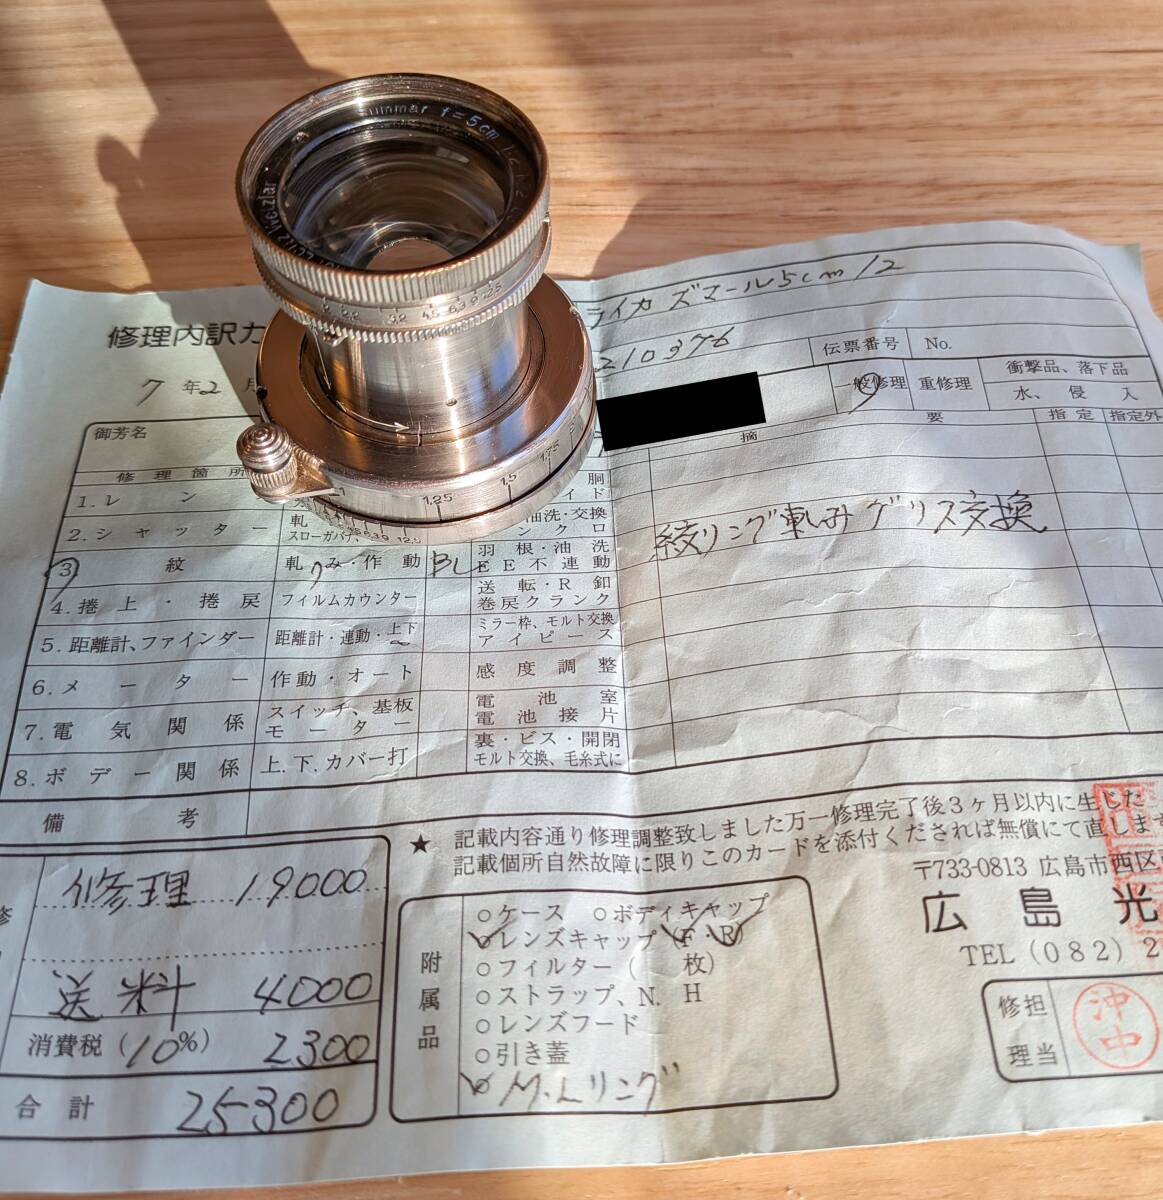 Summar f=5cm 1:2
Wetzlar
2 2.2 3.2 4.5 6.3 9 12.5
1 1,25 1,5 1,75 2
修理内訳カ
ライカ ズマール5cm/2
210376
7 年 2 月
伝票番号 No.
一般修理 重修理 衝撃品、落下品
水、侵入
御芳名
摘要 指定 指定外
修理箇所
1.レン
胴
2.シャッター
スローガバナ、
油洗・交換
3 絞 軋み・作動 BL 羽根・油洗
EE不連動
絞リング軋み グリス交換
4.捲上・捲戻 フィルムカウンター 送転・R釦
巻戻クランク
5.距離計、ファインダー 距離計・連動・上下 ミラー枠、モルト交換
アイピース
6.メーター 作動・オート 感度調整
7.電気関係 スイッチ、基板
モーター 電池室
電池接片
8.ボデー関係 上.下.カバー打 裏・ビス・開閉
モルト交換、毛糸式に
備考
★ 記載内容通り修理調整致しました万一修理完了後3ヶ月以内に生じた
記載個所自然故障に限りこのカードを添付くだされば無償にて直します
〒733-0813 広島市西区
広島光
TEL(082)2
修理 19000
送料 4000
消費税(10%) 2300
合計 25300
附属品
○ケース ○ボディキャップ
○レンズキャップ(F・R)
○フィルター( 枚)
○ストラップ、N.H
○レンズフード
○引き蓋
○M.Lリング
修理担当
沖中